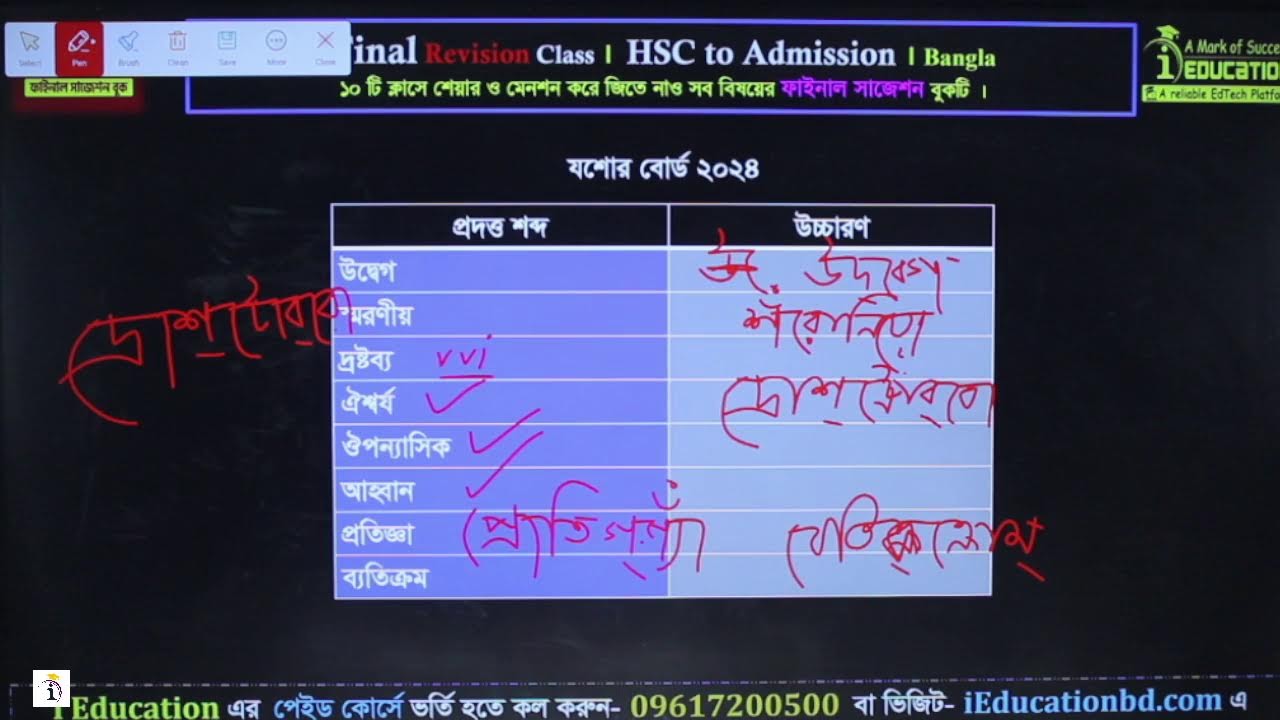 Select Pen Brush Clean Save More Close
Final Revision Class । HSC to Admission । Bangla
১০ টি ক্লাসে শেয়ার ও মেনশন করে জিতে নাও সব বিষয়ের ফাইনাল সাজেশন বুকটি ।
ফাইনাল সাজেশন বুক
A Mark of Succe
iEDUCATIO
A reliable EdTech Platfo
যশোর বোর্ড ২০২৪
প্রদত্ত শব্দ উচ্চারণ
উদ্বেগ উদ্‌বেগ্‌
স্মরণীয় শঁরোনিয়ো
দ্রষ্টব্য vvi
দ্রোশ্‌টোব্‌বো
ঐশ্বর্য দ্রোশ্‌টোব্‌বো
ঔপন্যাসিক
আহ্বান
প্রতিজ্ঞা (প্রোতিগ্‌গাঁ)
ব্যতিক্রম
iEducation এর পেইড কোর্সে ভর্তি হতে কল করুন- 09617200500 বা ভিজিট- iEducationbd.com এ